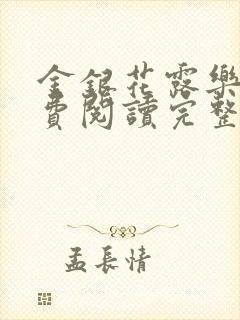 金銀花露樂
費閱讀完整
孟長情